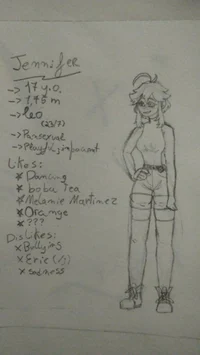 Jennifer
-> 17 y.o.
-> 1,76 m
-> leo
(23/7)
-> Pansexual
->
Likes:
* Dancing
* boba Tea
* Melanie Martinez
* Orange
* ???
Dislikes:
x Bullying
x Eric
x sadness